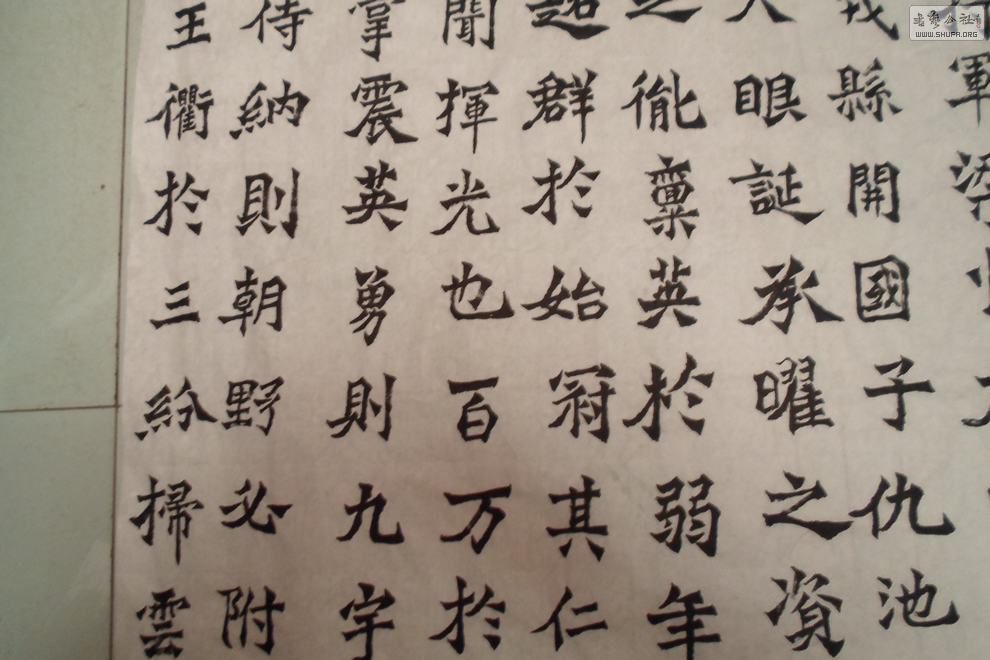 軍梁
戎縣開國子仇池
大眼誕承曜之資
之胤稟英於弱年
超群於始冠其仁
聞揮光也百万於
掌震英勇則九宇
侍納則朝野必附
王衢於三紛掃雲
書藝公社
WWW.SHUFA.ORG